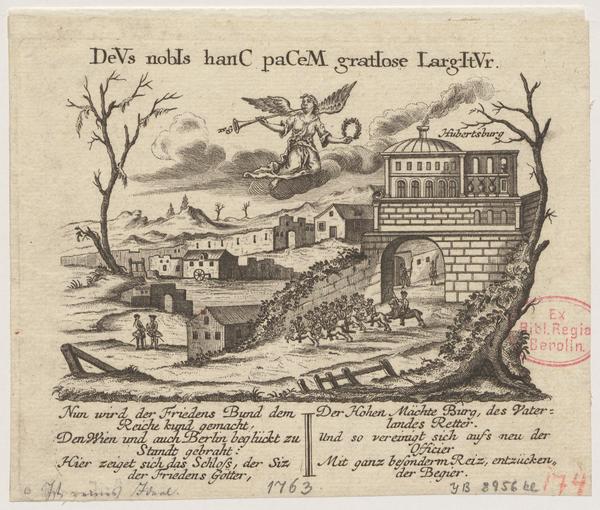 DeVs nobIs hanC paCeM gratIose LargItVr.
Hubertsburg
Ex
Bibl. Regia
Berolin.
Nun wird der Friedens Bund dem
Reiche kund gemacht,
Den Wien und auch Berlin beglückt zu
Standt gebraht:
Hier zeiget sich das Schloß, der Siz
der Friedens Götter,
Der Hohen Mächte Burg, des Vater-
landes Retter.
Und so vereinigt sich aufs neu der
Officier
Mit ganz besonderm Reiz, entzücken„
der Begier.
1763.
YB 8956 kl
174